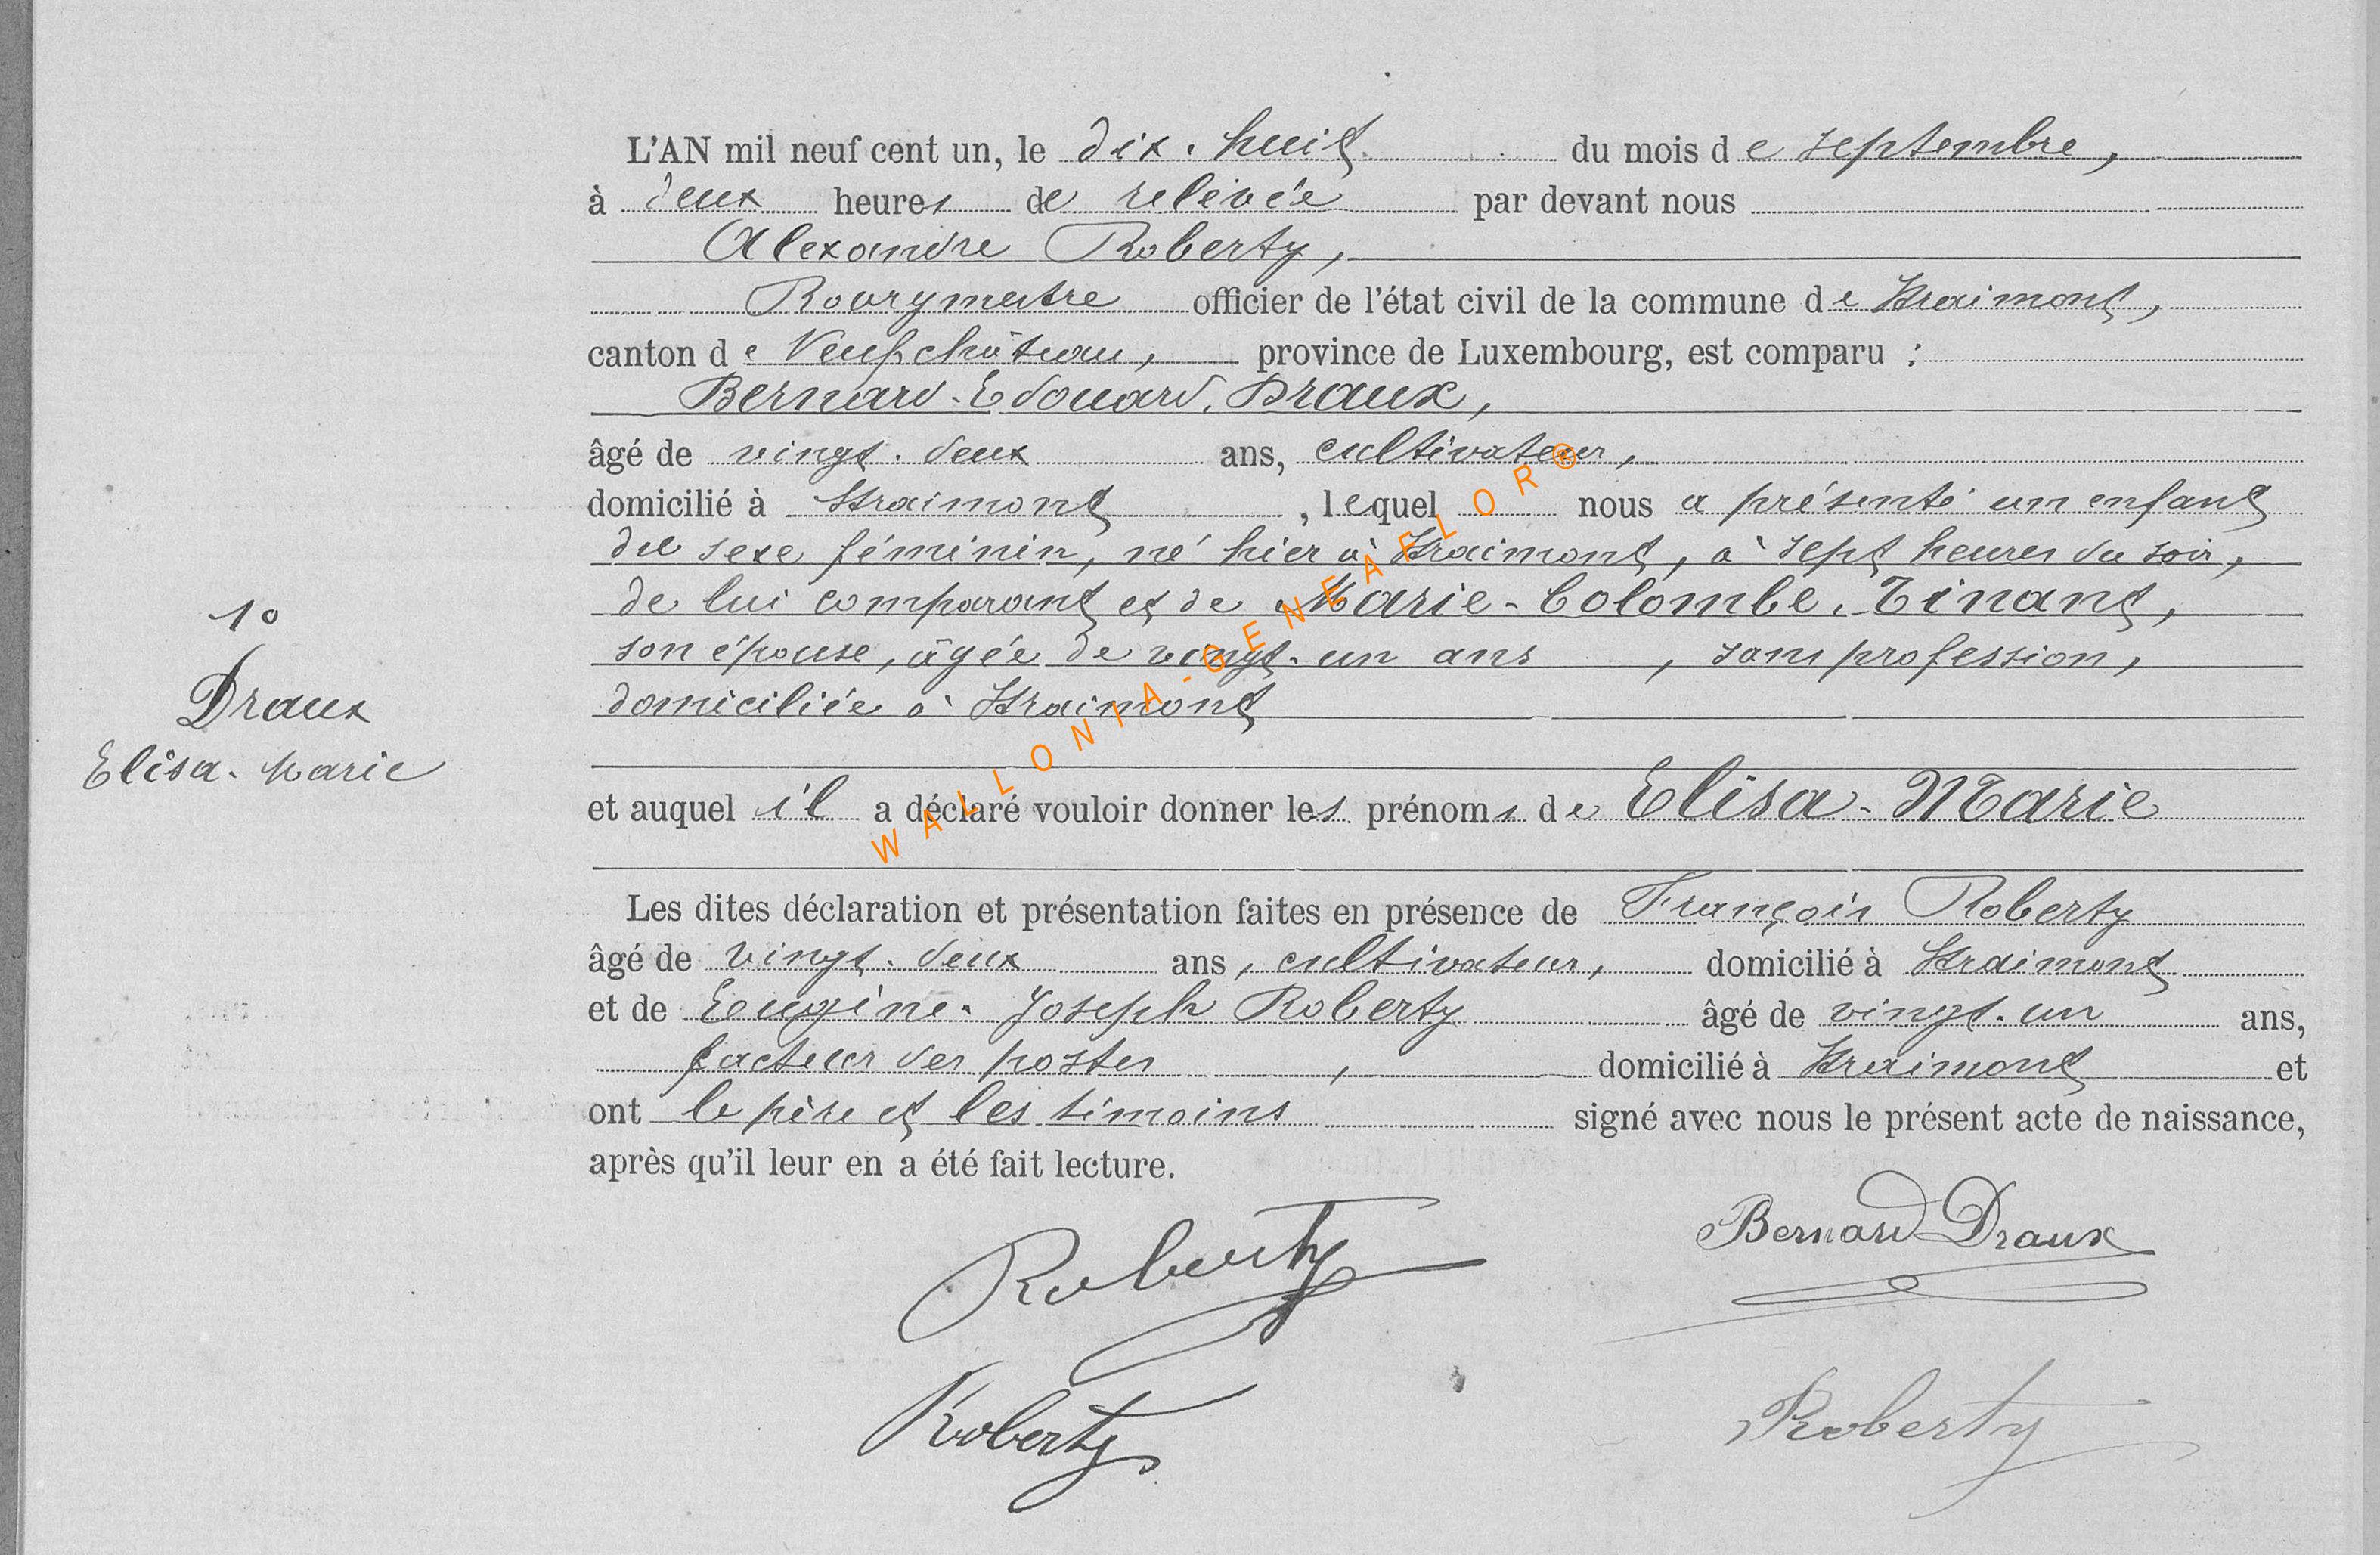 L'AN mil neuf cent un, le dix-huit du mois de septembre,
à deux heures de relevée par devant nous
Alexandre Roberty,
Bourgmestre officier de l'état civil de la commune de Straimont,
canton de Neufchâteau, province de Luxembourg, est comparu :
Bernard-Edouard Draux,
âgé de vingt-deux ans, cultivateur,
domicilié à Straimont, lequel nous a présenté un enfant
du sexe féminin, né hier à Straimont, à sept heures du soir,
de lui comparant et de Marie-Colombe Tinant,
son épouse, âgée de vingt-un ans, sans profession,
domiciliée à Straimont
1º
Draux
Elisa-Marie
et auquel il a déclaré vouloir donner les prénoms de Elisa-Marie
Les dites déclaration et présentation faites en présence de François Roberty
âgé de vingt-deux ans, cultivateur, domicilié à Straimont
et de Eugène-Joseph Roberty âgé de vingt-un ans,
facteur des postes, domicilié à Straimont et
ont le père et les témoins signé avec nous le présent acte de naissance,
après qu'il leur en a été fait lecture.
Roberty
Bernard Draux
Roberty
Roberty
WALLONIA-GENEAFLOR®